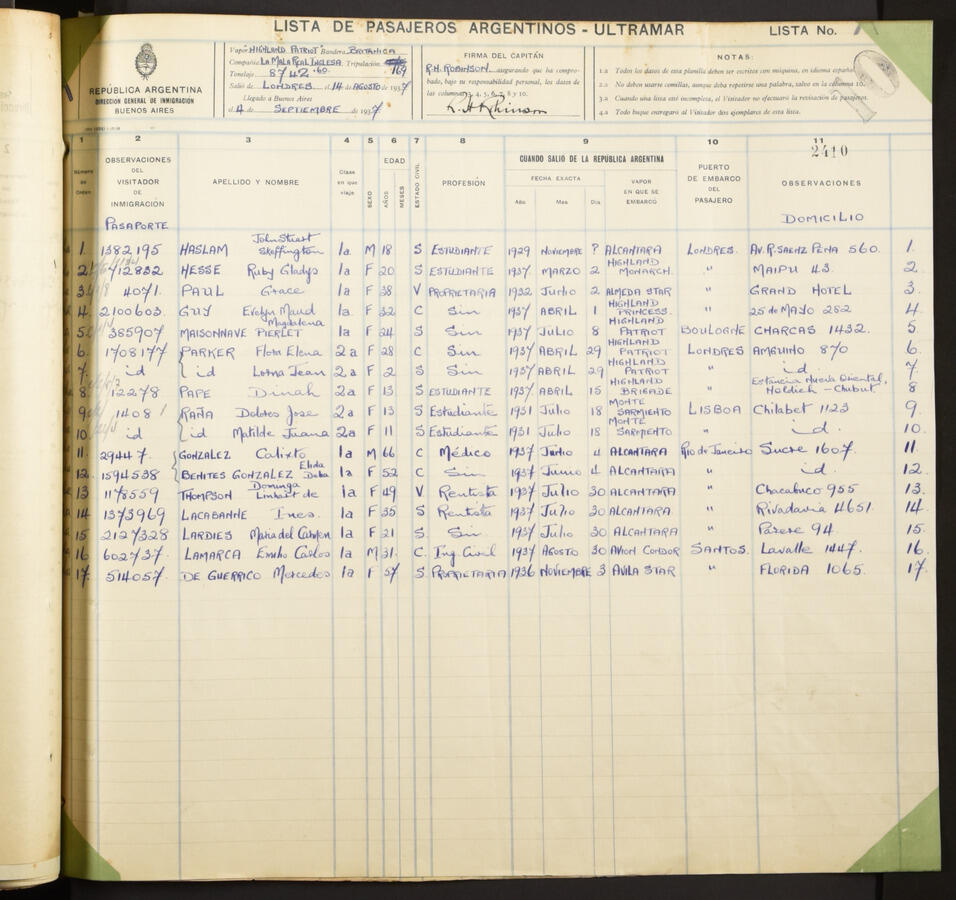 LISTA DE PASAJEROS ARGENTINOS - ULTRAMAR
LISTA No.
REPUBLICA ARGENTINA
DIRECCION GENERAL DE INMIGRACION
BUENOS AIRES
Vapor "HIGHLAND PATRIOT" Bandera BRITANICA
Compañía LA MALA REAL INGLESA. Tripulación 169
Tonelaje 8742.60
Salió de LONDRES. el 14 de AGOSTO de 1937
Llegado a Buenos Aires
el 4 de SEPTIEMBRE de 1937
FIRMA DEL CAPITÁN
R.H. ROBINSON asegurando que ha comprobado, bajo su responsabilidad personal, los datos de
las columnas 3, 4, 5, 6, 7, 8 y 10.
NOTAS:
1.a Todos los datos de esta planilla deben ser escritos con máquina, en idioma español
2.a No deben usarse comillas, aunque deba repetirse una palabra, salvo en la columna 10.
3.a Cuando una lista esté incompleta, el Visitador no efectuará la revisación de pasajeros.
4.a Todo buque entregará al Visitador dos ejemplares de esta lista.
1 2 3 4 5 6 7 8 9 10 11
2410
Número de Orden
OBSERVACIONES DEL VISITADOR DE INMIGRACIÓN
APELLIDO Y NOMBRE
Clase en que viaje
SEXO
EDAD
AÑOS MESES
ESTADO CIVIL
PROFESIÓN
CUANDO SALIO DE LA REPUBLICA ARGENTINA
FECHA EXACTA
Año Mes Día
VAPOR EN QUE SE EMBARCÓ
PUERTO DE EMBARCO DEL PASAJERO
OBSERVACIONES
PASAPORTE
DOMICILIO
1. 1382195 HASLAM John Stuart Skeffington 1a M 18 S ESTUDIANTE 1929 NOVIEMBRE ? ALCANTARA LONDRES. AV. R. SAENZ PEÑA 560. 1.
2. 712832 HESSE Ruby Gladys 1a F 20 S ESTUDIANTE 1937 MARZO 2 HIGHLAND MONARCH. " MAIPU 43. 2.
3. 4071. PAUL Grace 1a F 38 V PROPRIETARIA 1932 Junio 2 ALMEDA STAR " GRAND HOTEL 3.
4. 2100603. GUY Evelyn Maud 1a F 32 C Sin 1937 ABRIL 1 HIGHLAND PRINCESS. " 25 de MAYO 252 4
5. 385907 MAISONNAVE PIERLET Magdalena 1a F 24 S Sin 1937 JULIO 8 HIGHLAND PATRIOT BOULOGNE CHARCAS 1432. 5
6. 1708177 PARKER Flora Elena 2a F 28 C Sin 1937 ABRIL 29 HIGHLAND PATRIOT LONDRES 870 6.
7. id id Lorna Jean 2a F 2 S Sin 1937 ABRIL 29 HIGHLAND PATRIOT " id. 7
8. 12278 PAPE Dinah 2a F 13 S ESTUDIANTE 1937 ABRIL 15 HIGHLAND BRIGADE " Estancia Nueva Oriental, Holdich - Chubut 8
9. 1408 RAÑA Dolores Jose 2a F 13 S Estudiante 1931 Julio 18 MONTE SARMIENTO LISBOA Chilabet 1123 9.
10. id id Matilde Juana 2a F 11 S Estudiante 1931 Julio 18 MONTE SARMIENTO " id. 10.
11. 29447. GONZALEZ Calixto 1a M 66 C Médico 1937 Junio 4 ALCANTARA Rio de Janeiro Sucre 1607. 11.
12. 1594538 BENITES GONZALEZ Elida 1a F 52 C Sin 1937 Junio 4 ALCANTARA " id. 12.
13 1178559 THOMPSON Dominga de 1a F 49 V Rentista 1937 Julio 30 ALCANTARA " Chacabuco 955 13.
14 1373969 LACABANNE Ines. 1a F 35 S Rentista 1937 Julio 30 ALCANTARA. " Rivadavia 4651. 14.
15 2127328 LARDIES Maria del Carmen 1a F 21 S Sin 1937 Julio 30 ALCANTARA " Perere 94. 15.
16 602737. LAMARCA Emilio Carlos 1a M 31. C. Ing. Civil 1937 AGOSTO 30 AVION CONDOR SANTOS. Lavalle 1447. 16.
17. 514057. DE GUERRICO Mercedes 1a F 57 S PROPRIETARIA 1936 NOVIEMBRE 3 AVILA STAR " FLORIDA 1065. 17.